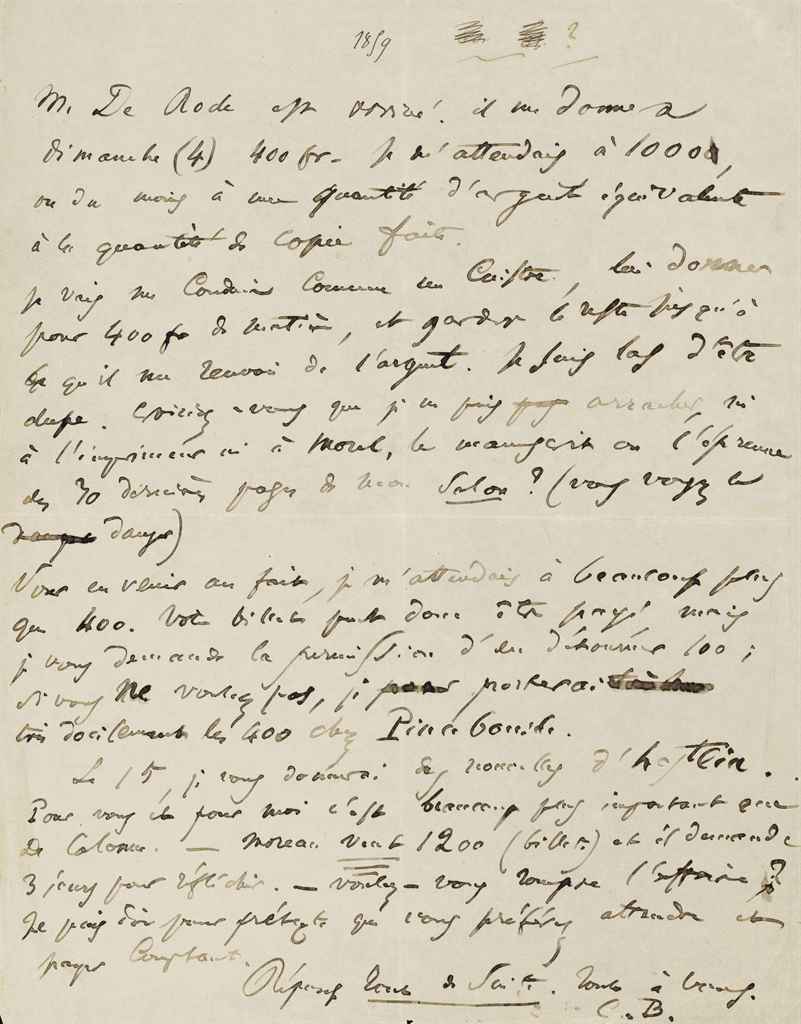 1859 ?
M. De Rode est arrivé. il me donnera
dimanche (4) 400 fr. Je m'attendais à 1000,
ou du moins à une quantité d'argent équivalente
à la quantité de copie faite.
Je vais me conduire comme un Cuistre, lui donner
pour 400 fr de matière, et garder le reste jusqu'à
ce qu'il me renvoie de l'argent. Je suis las d'être
dupe. Croiriez-vous que je ne puis pas arracher, ni
à l'imprimeur ni à Morel, le manuscrit ou l'épreuve
des 30 dernières pages de mon Salon ? (vous voyez le
danger danger)
Pour en venir au fait, je m'attendais à beaucoup plus
que 400. Votre billet peut donc être payé mais
je vous demande la permission d'en détourner 100 ;
si vous ne voulez pas, je porterai
très docilement les 400 chez Pincebourde.
Le 15, je vous donnerai des nouvelles d'hostein.
Pour vous et pour moi c'est beaucoup plus important que
de Calonne. — Moreau veut 1200 (billets) et il demande
3 jours pour réfléchir. — voulez-vous rompre l'affaire ?
Je puis dire pour prétexte que vous préférez attendre et
payer Comptant.
Réponse tout de Suite. Tout à vous.
C. B.